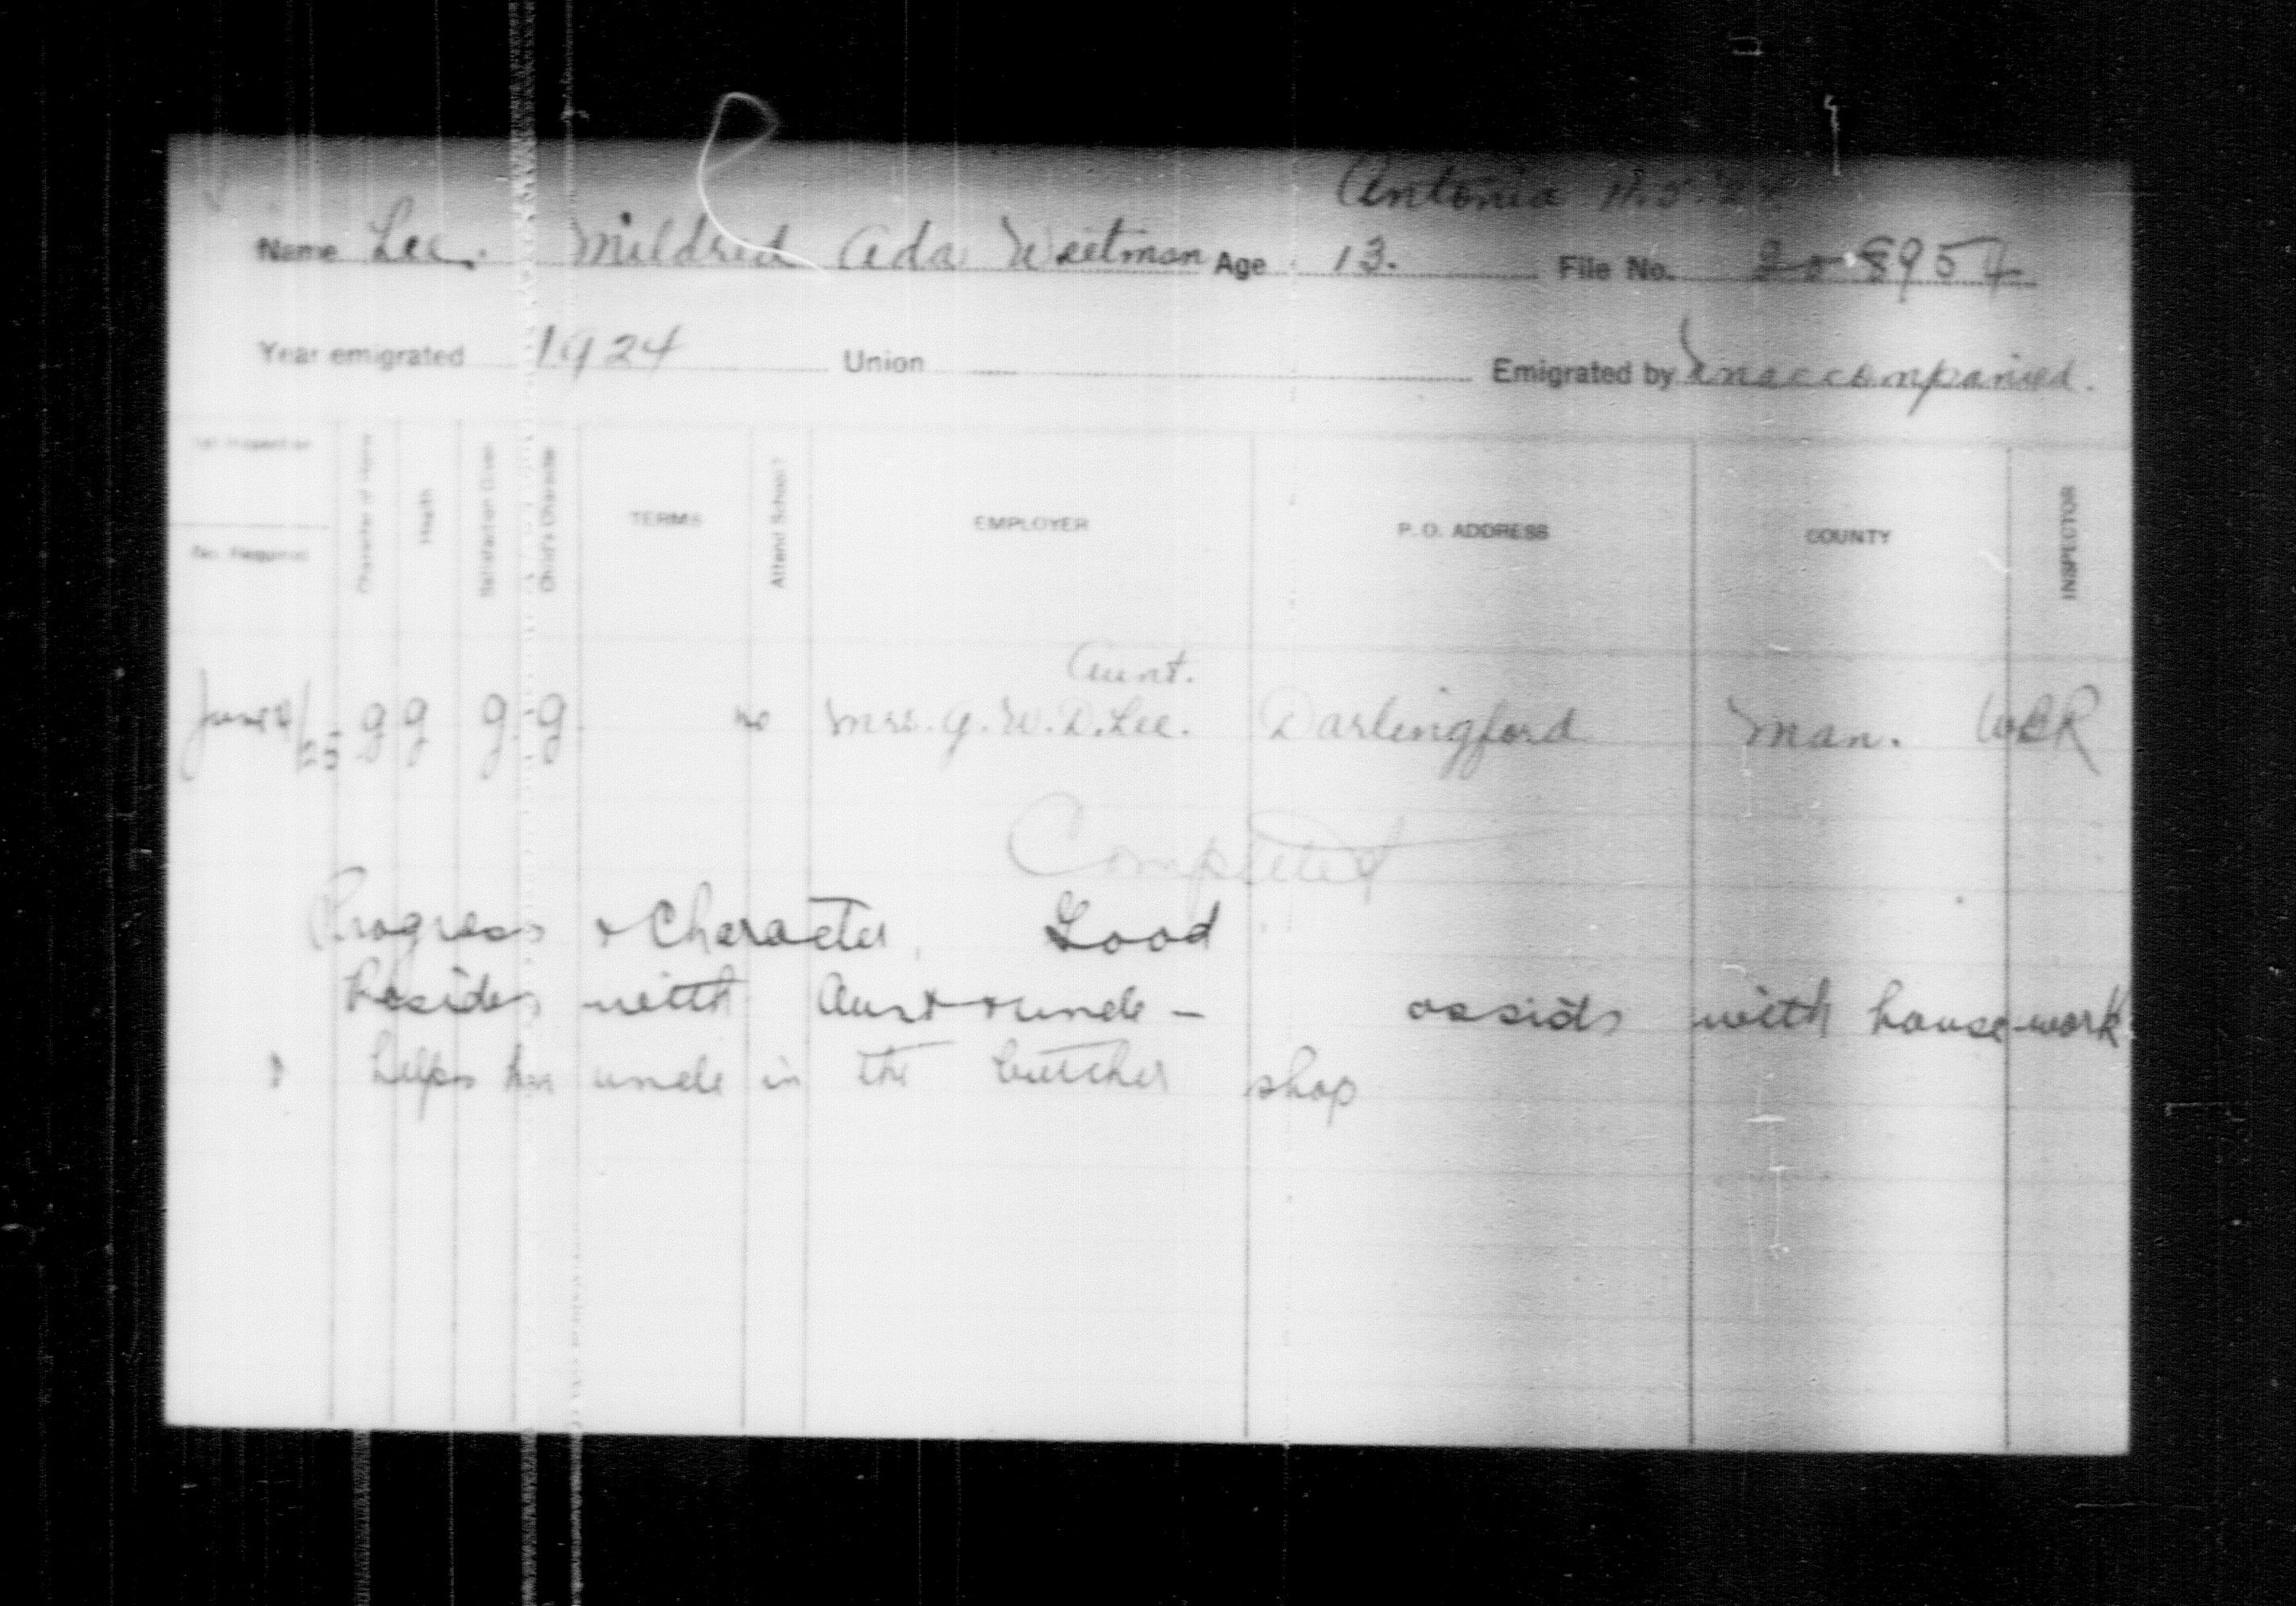 Antonia
Name Lee. Mildred Ada Weetman Age 13. File No. 20 8957
Year emigrated 1924 Union Emigrated by Unaccompanied.
1st Inspection
No. Required
Character of Home
Health
Satisfaction Given
Child's Character
TERMS
Attend School?
EMPLOYER
P. O. ADDRESS
COUNTY
INSPECTOR
Aunt.
June g g g g no Mrs. G. W. D. Lee. Darlingford Man. WBR
Completed
Progress & Character, Good
Resides with Aunt & uncle - assists with house-work
helps her uncle in the butcher shop